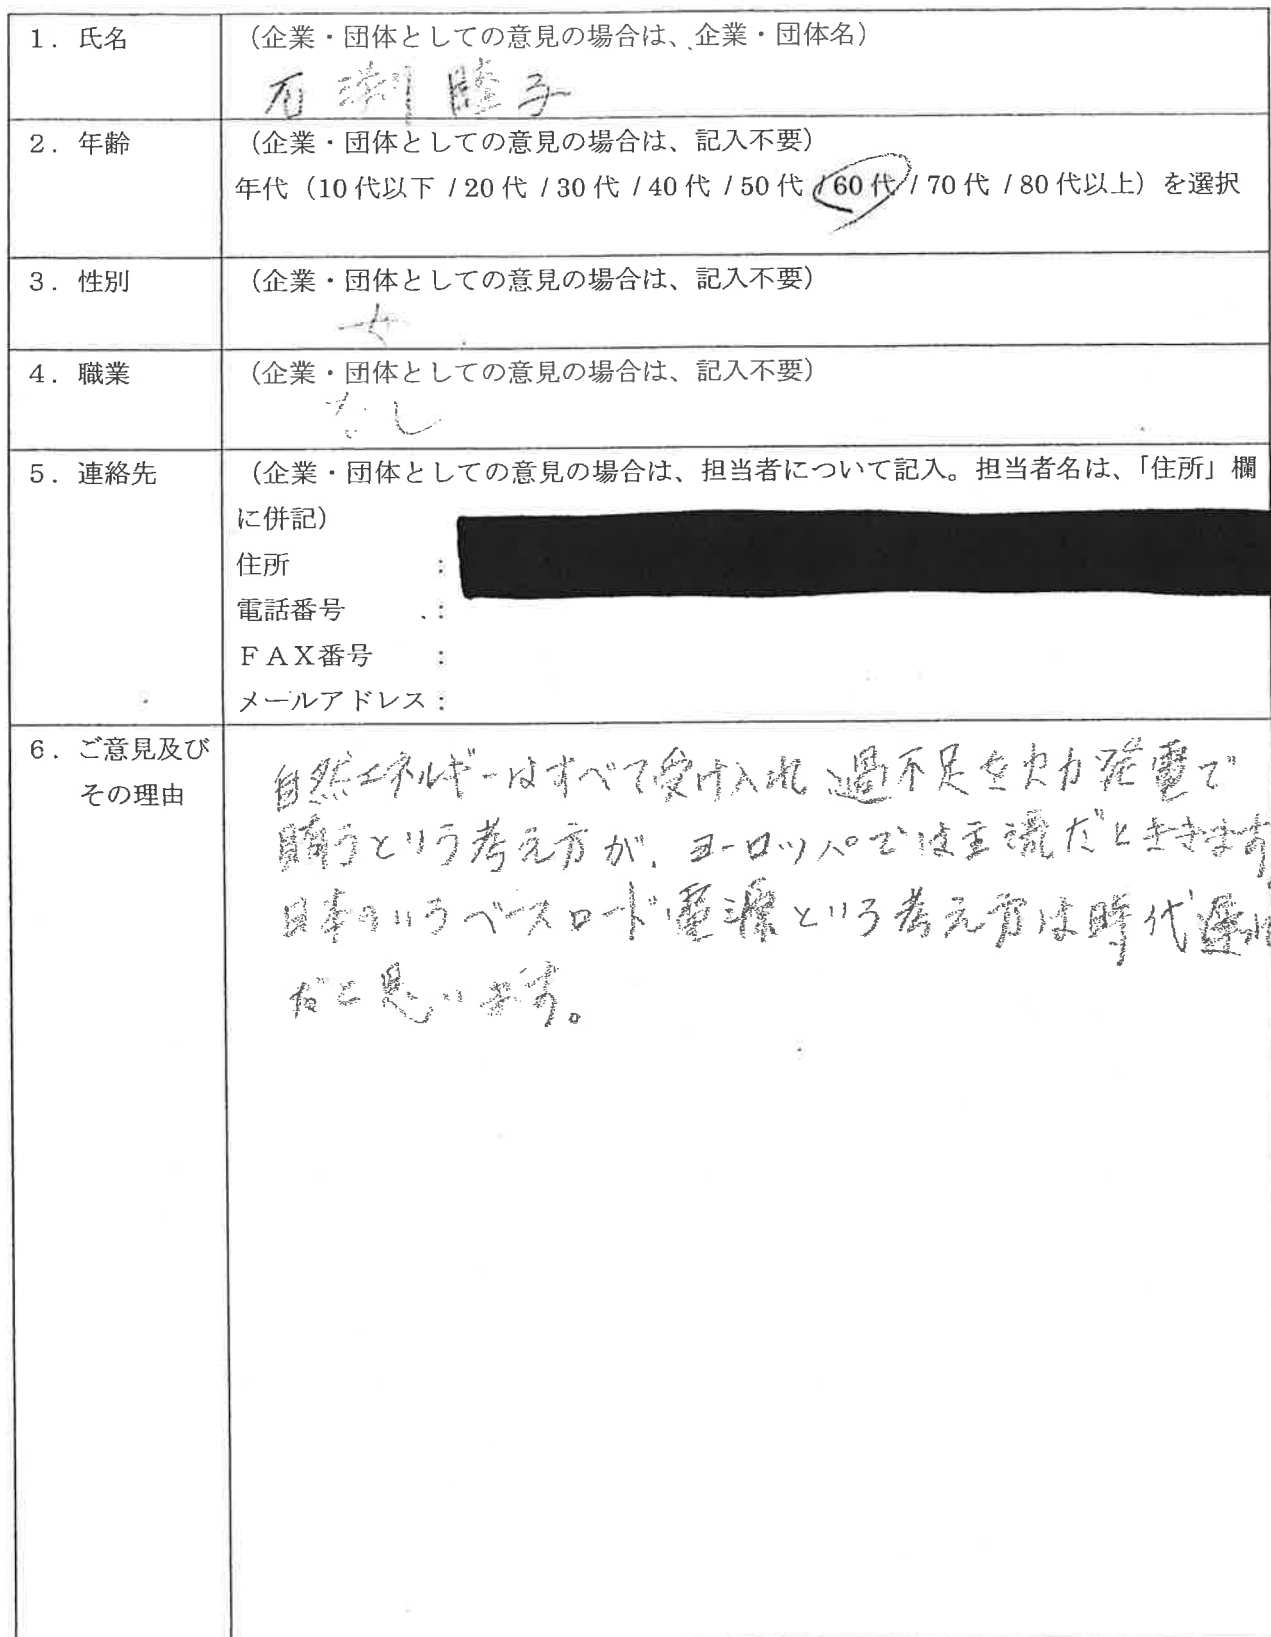 1．氏名
(企業・団体としての意見の場合は、企業・団体名)
睦子
2．年齢
(企業・団体としての意見の場合は、記入不要)
年代（10代以下 / 20代 / 30代 / 40代 / 50代 / 60代 / 70代 / 80代以上）を選択
3．性別
(企業・団体としての意見の場合は、記入不要)
女
4．職業
(企業・団体としての意見の場合は、記入不要)
なし
5．連絡先
(企業・団体としての意見の場合は、担当者について記入。担当者名は、「住所」欄
に併記)
住所　：
電話番号　：
ＦＡＸ番号　：
メールアドレス：
6．ご意見及び
その理由
自然エネルギーはすべて受け入れ過不足を火力発電で
賄うという考え方が、ヨーロッパでは主流だとききます
日本のいうベースロード電源という考え方は時代遅れ
だと思います。